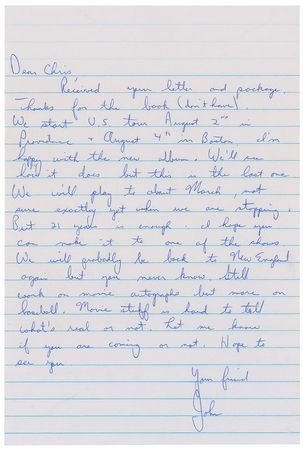 Dear Chris,
Received your letter and package.
Thanks for the book (don't have).
We start U.S. tour August 2nd in
Providence + August 4th in Boston. I'm
happy with the new album. We'll see
how it does but this is the last one
We will play to about March, not
sure exactly yet when we are stopping.
But 21 years is enough. I hope you
can make it to one of the shows
We will probably be back to New England
again but you never know. Still
work on movie autographs but more on
baseball. Movie stuff is hard to tell
what's real or not. Let me know
if you are coming or not. Hope to
see you.
Your friend
John